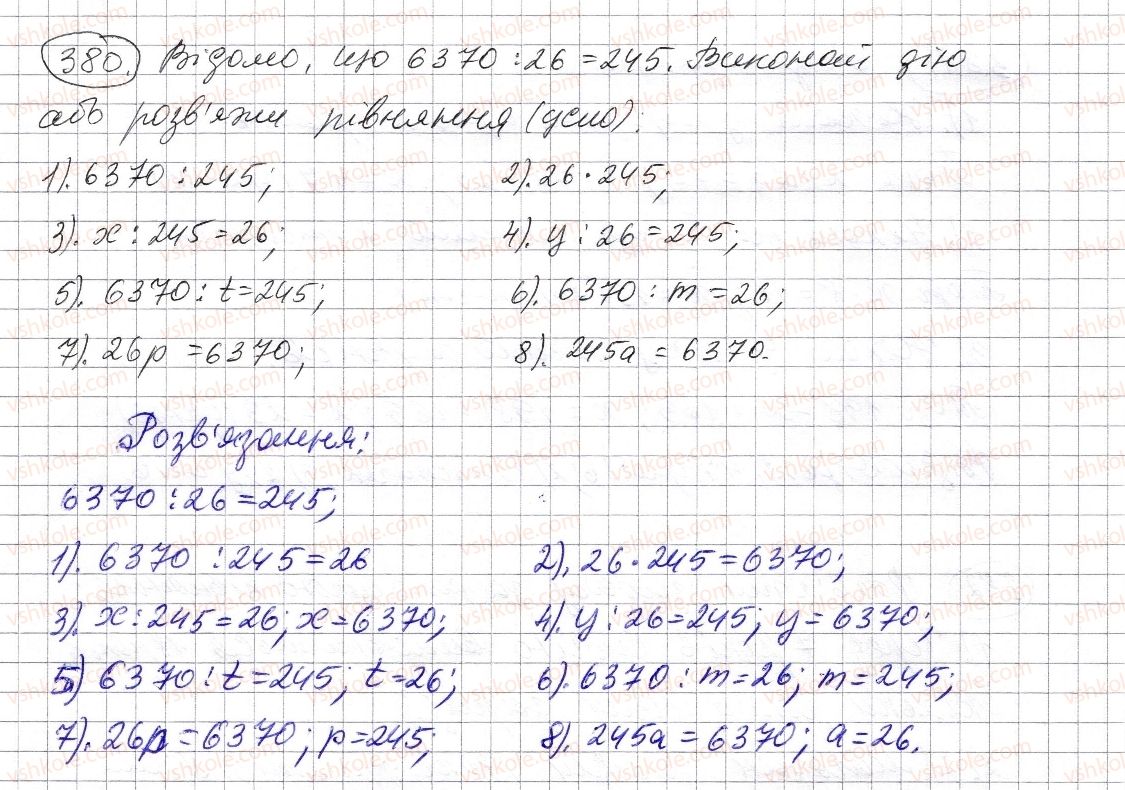 380. Відомо, що 6370 : 26 = 245. Виконай дію
або розв'яжи рівняння (усно):
1). 6370 : 245; 2). 26 · 245;
3). x : 245 = 26; 4). y : 26 = 245;
5). 6370 : t = 245; 6). 6370 : m = 26;
7). 26p = 6370; 8). 245a = 6370.
Розв'язання:
6370 : 26 = 245;
1). 6370 : 245 = 26 2). 26 · 245 = 6370;
3). x : 245 = 26; x = 6370; 4). y : 26 = 245; y = 6370;
5) 6370 : t = 245; t = 26; 6). 6370 : m = 26; m = 245;
7). 26p = 6370; p = 245; 8). 245a = 6370; a = 26.
vshkole.com